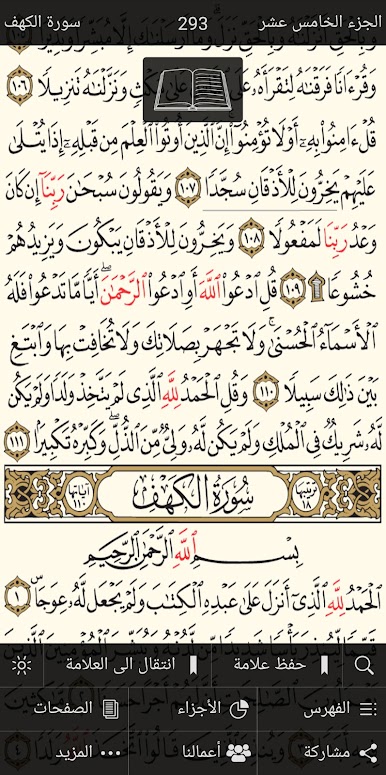 الجزء الخامس عشر 293 سورة الكهف
وَقُرۡءَانٗا فَرَقۡنَٰهُ لِتَقۡرَأَهُۥ عَلَى مُكۡثٖ وَنَزَّلۡنَٰهُ تَنزِيلٗا ١٠٦
قُلۡ ءَامِنُواْ بِهِۦٓ أَوۡ لَا تُؤۡمِنُوٓاْۚ إِنَّ ٱلَّذِينَ أُوتُواْ ٱلۡعِلۡمَ مِن قَبۡلِهِۦٓ إِذَا يُتۡلَىٰ
عَلَيۡهِمۡ يَخِرُّونَۤ لِلۡأَذۡقَانِۤ سُجَّدٗاۤ ١٠٧ وَيَقُولُونَ سُبۡحَٰنَ رَبِّنَآ إِن كَانَ
وَعۡدُ رَبِّنَا لَمَفۡعُولٗا ١٠٨ وَيَخِرُّونَ لِلۡأَذۡقَانِ يَبۡكُونَ وَيَزِيدُهُمۡ
خُشُوعٗا ۩ ١٠٩ قُلِ ٱدۡعُواْ ٱللَّهَ أَوِ ٱدۡعُواْ ٱلرَّحۡمَٰنَۖ أَيّٗا مَّا تَدۡعُواْ فَلَهُ
ٱلۡأَسۡمَآءُ ٱلۡحُسۡنَىٰۚ وَلَا تَجۡهَرۡ بِصَلَاتِكَ وَلَا تُخَافِتۡ بِهَا وَٱبۡتَغِ
بَيۡنَ ذَٰلِكَ سَبِيلٗا ١١٠ وَقُلِ ٱلۡحَمۡدُ لِلَّهِ ٱلَّذِي لَمۡ يَتَّخِذۡ وَلَدٗا وَلَمۡ يَكُن
لَّهُۥ شَرِيكٞ فِي ٱلۡمُلۡكِ وَلَمۡ يَكُن لَّهُۥ وَلِيّٞ مِّنَ ٱلذُّلِّۖ وَكَبِّرۡهُ تَكۡبِيرَۢا ١١١
ترتيبها ١٨ سُورَةُ ٱلْكَهْفِ آياتها ١١٠
بِسۡمِ ٱللَّهِ ٱلرَّحۡمَٰنِ ٱلرَّحِيمِ
ٱلۡحَمۡدُ لِلَّهِ ٱلَّذِيٓ أَنزَلَ عَلَىٰ عَبۡدِهِ ٱلۡكِتَٰبَ وَلَمۡ يَجۡعَل لَّهُۥ عِوَجَاۜ ١
حفظ علامة انتقال الى العلامة
الفهرس الأجزاء الصفحات
مشاركة أعمالنا المزيد